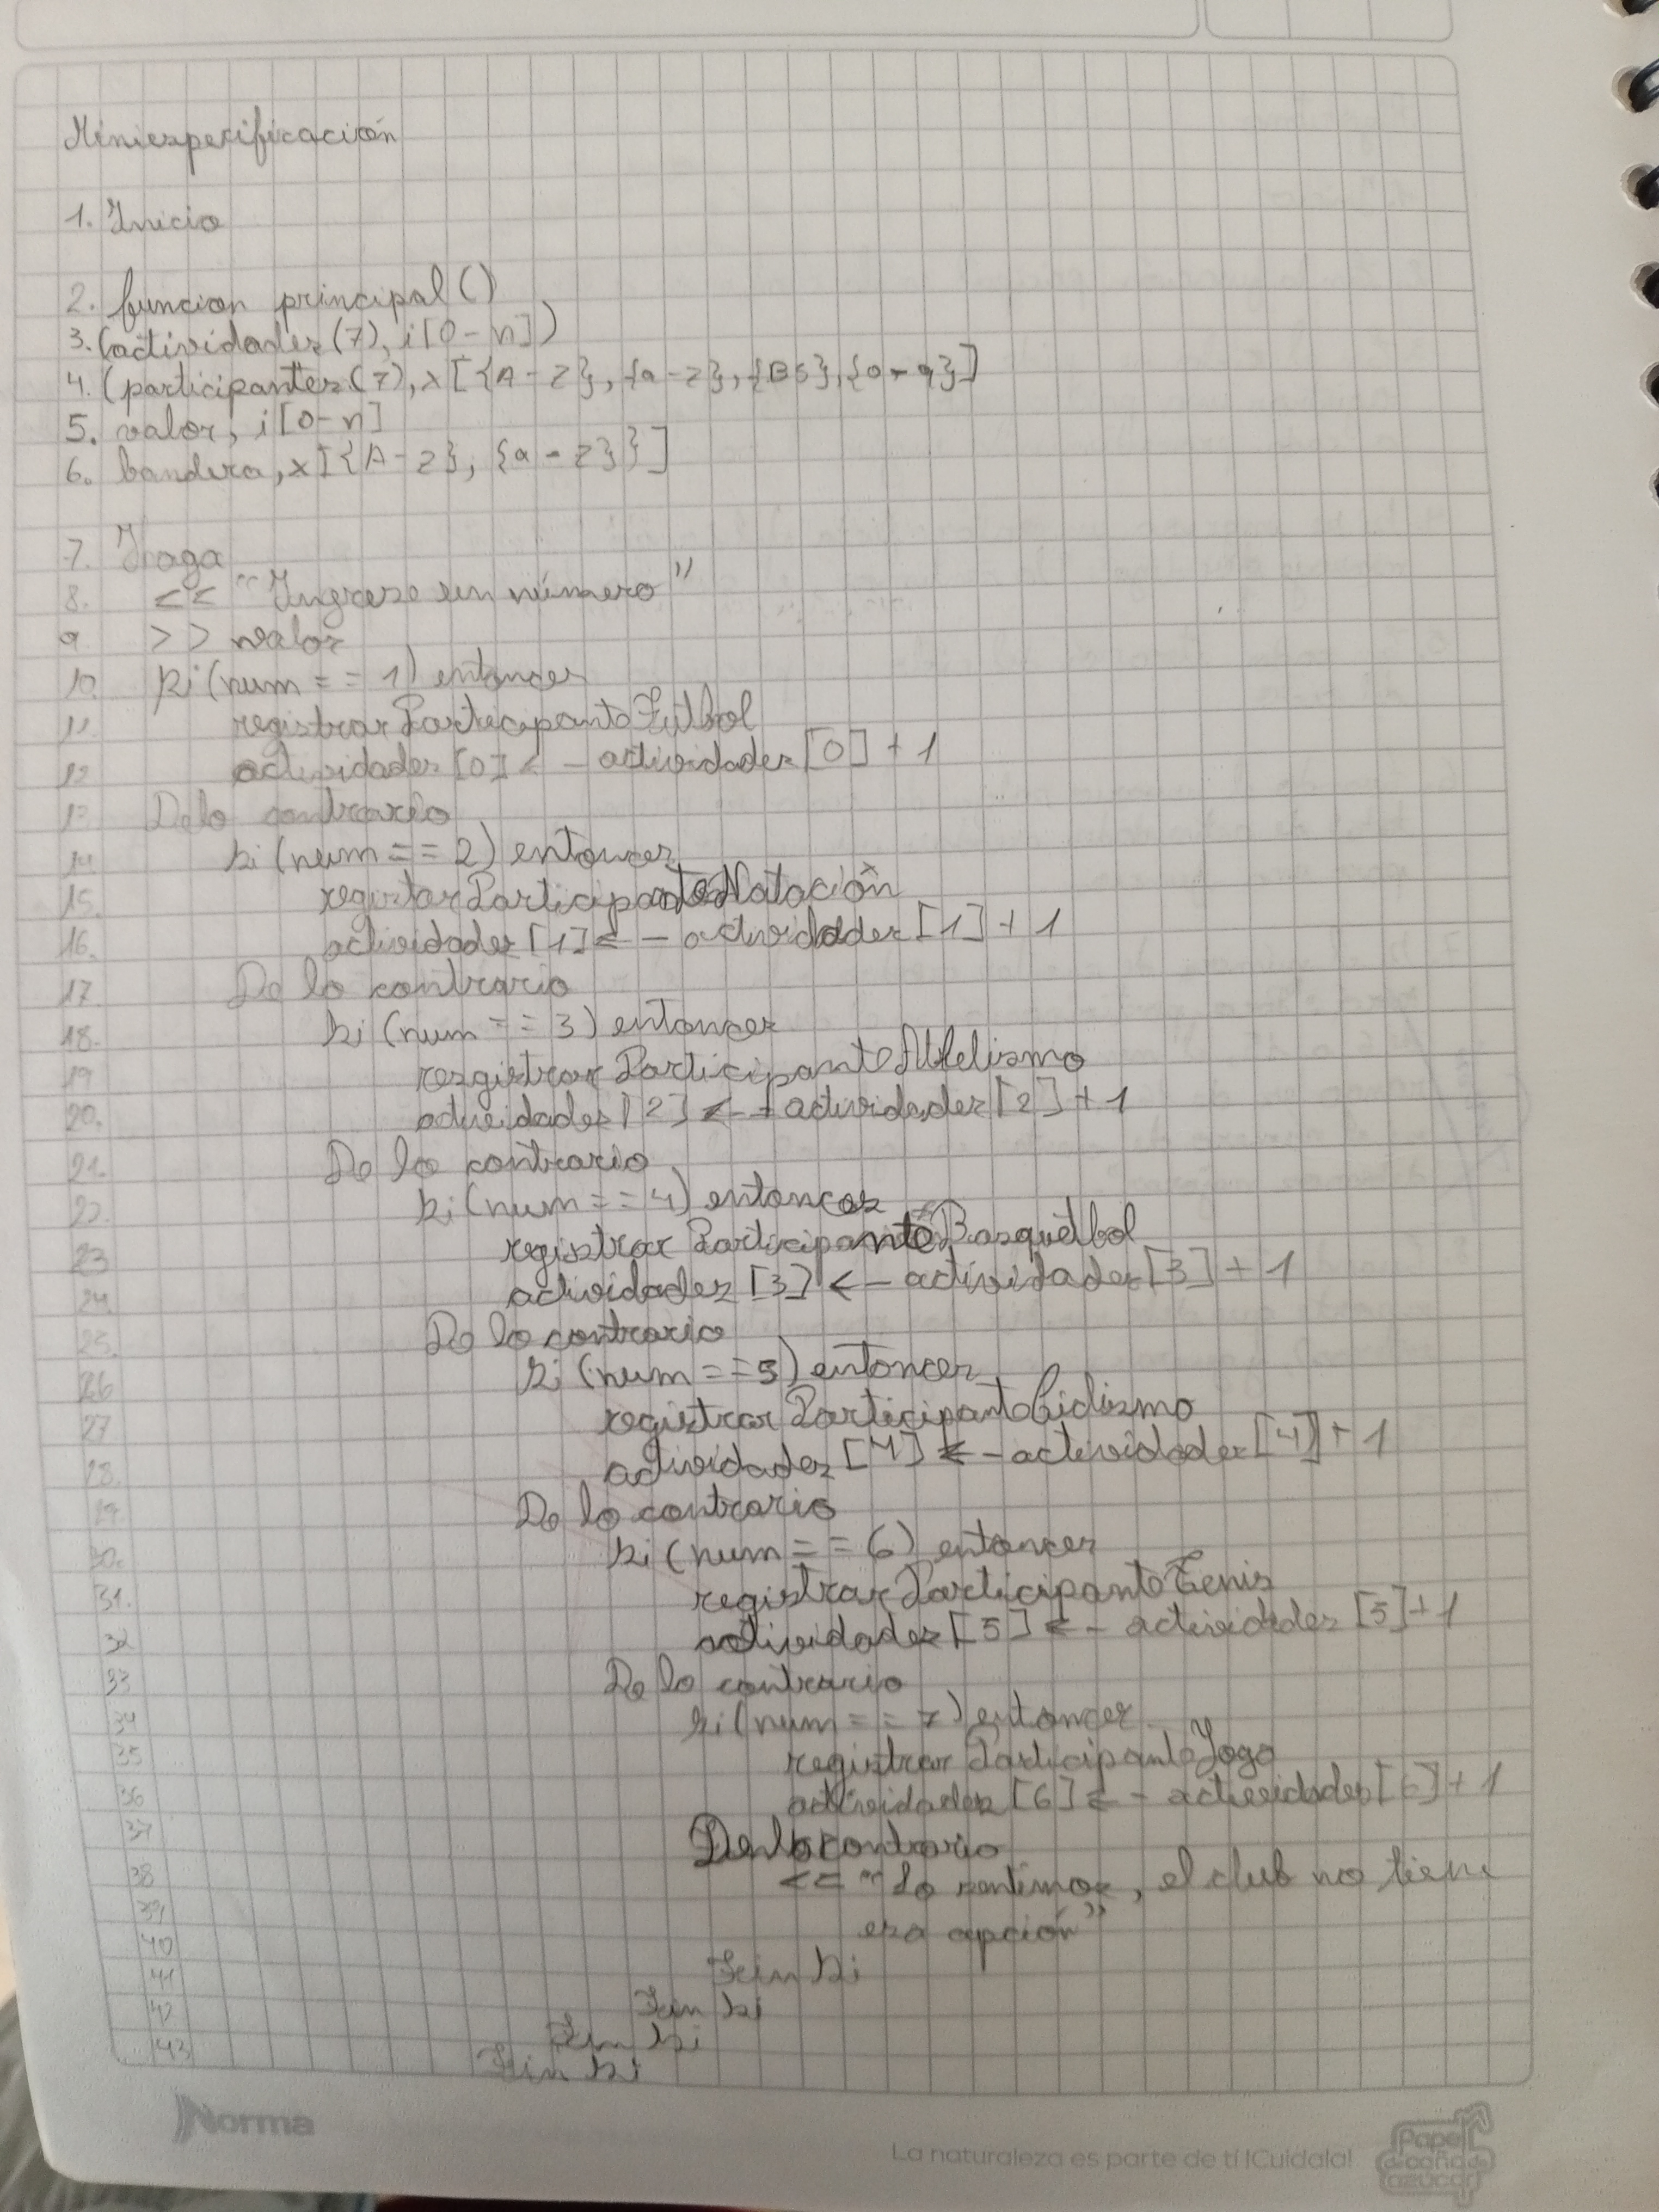 Miniespecificación
1. Inicio
2. funcion principal()
3. (actividades(7), i[0-n])
4. (participantes(7), x[{A-Z},{a-z},{BS},{0-9}]
5. valor, i[0-n]
6. bandera, x[{A-z}, {a-z}}]
7. Haga
8. << "Ingrese un número"
9 >> valor
10. si(num == 1) entonces
11 registrarParticipanteFutbol
12 actividades[0] <- actividades[0] + 1
13 De lo contrario
14 si(num == 2) entonces
15. registarParticipanteNatación
16. actividades[1] <- actividades[1] + 1
17. De lo contrario
18. si(num == 3) entonces
19 resgistrarParticipanteAtletismo
20. actividades[2] <- actividades[2] + 1
21. De lo contrario
22. si(num == 4) entonces
23 registrarParticipanteBasquetbol
24. actividades[3] <- actividades[3] + 1
25. De lo contrario
26 si(num == 5) entonces
27 registrarParticipanteCiclismo
28. actividades[4] <- actividades[4] + 1
29. De lo contrario
30. si(num == 6) entonces
31. registrarParticipanteTenis
32 actividades[5] <- actividades[5] + 1
33 De lo contrario
34 si(num == 7) entonces
35 registrarParticipanteYoga
36 actividades[6] <- actividades[6] + 1
37 De lo contrario
38 << "Lo sentimos, el club no tiene
39 esa opción"
40 Fin si
41 Fin si
42 Fin si
43 Fin si
Norma
La naturaleza es parte de tí !Cuídala!
Papel
de caña de
azúcar